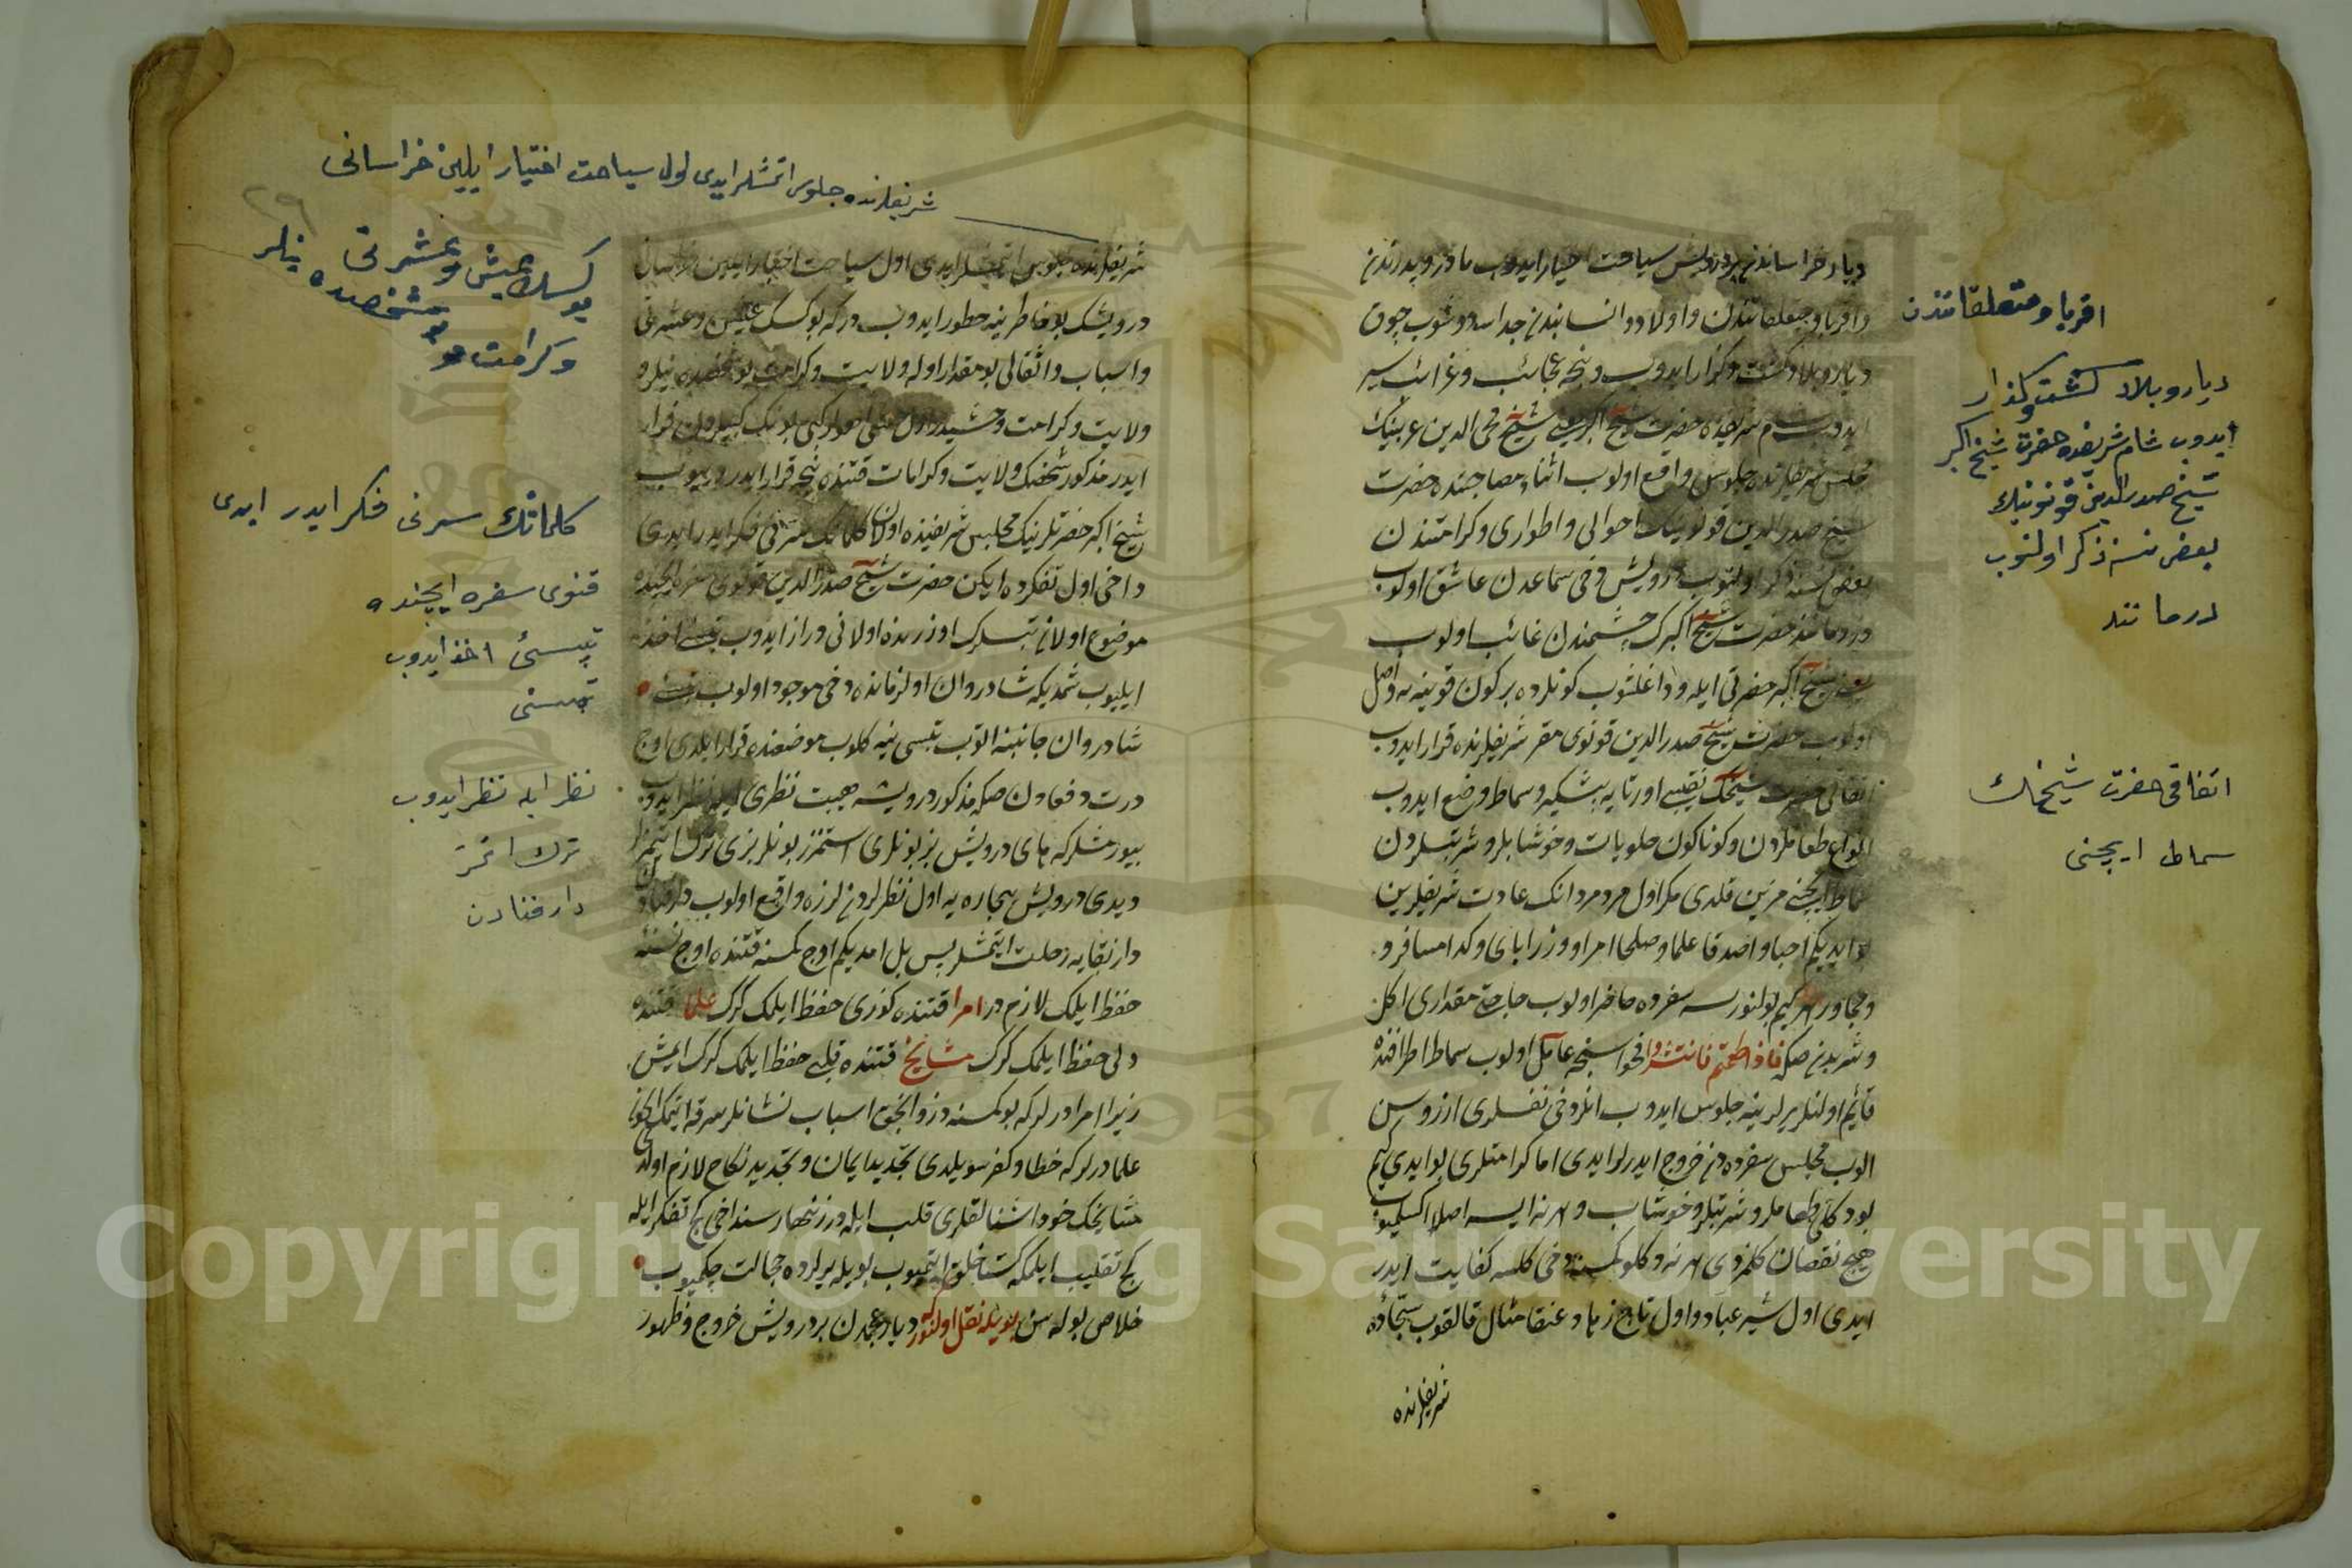 ديار خراساندن بر درويش سياحت اختيار ايدوب مادر و پدرندن
واقربا و متعلقاتندن و اولاد و انسابندن جدا دوشوب چوق
ديار و بلاد كشت و كذار ايدوب و نيجه عجائب و غرائب سير
ايدوب شام شريفده حضرت شيخ اكبر يعنى شيخ محى الدين عربينك
مجلس شريفلرنده جلوس واقع اولوب اثناء مصاحبتده حضرت
شيخ صدر الدين قونوينك احوالى و اطوارى و كرامتندن
بعض نسنه ذكر اولنوب درويش دخى سماعدن عاشق اولوب
درومانند حضرت شيخ اكبرك چشمندن غائب اولوب
شيخ اكبر حضرتى ايله وداعلشوب كونلرده بر كون قونيه يه واصل
اولوب حضرت شيخ صدر الدين قونوى مقر شريفلرنده قرار ايدوب
اتفاقى حضرت شيخك نقيبى اورتايه پيشكير و سماط وضع ايدوب
انواع طعاملردن و كوناكون حلويات و خوشابلر و شربتلردن
سماط ايچنى مزين قلدى مكر اول مرد مردانك عادت شريفلرين
بو ايديكم احبا و اصدقا علما و صلحا امرا و وزرا باى و كدا مسافر و
و مجاور هر كيم بولنورسه سفره ده حاضر اولوب حاجت مقدارى اكل
و شربدن صكره فاذا طعمتم فانتشروا فحواسنجه عامل اولوب سماط اطرافنده
قائم اولنلر يرلرينه جلوس ايدوب انلر دخى نفسلرى ارزوسن
الوب مجلس سفره دن خروج ايدرلر ايدى اما كرامتلرى بو ايدى كيم
بو دكلو طعاملر و شربتلر و خوشاب و هر نه ايسه اصلا اكسيلميوب
هيچ نقصان كلمزدى هر نه دكلو كمسنه دخى كلسه كفايت ايدر
ايدى اول شير عباد و اول تاج زهاد عنقا مثال قالقوب سجاده
شريفلرنده
اقربا و متعلقاتندن
ديار و بلاد كشت و كذار
ايدوب شام شريفده حضرت شيخ اكبر
شيخ صدر الدين قونوينك
بعض نسنه ذكر اولنوب
درمانند
اتفاقى حضرت شيخك
سماط ايچنى
شريفلرنده جلوس اتمشلر ايدى اول سياحت اختيار ايلين خراسانى
٢٩
بوكسك عيش و عشرتى
بو شخصده نيلر
و كرامت
كلماتك سرنى فكر ايدر ايدى
قنوى سفره ايچنده
تپسىئ اخذ ايدوب
تپسنى
نظر ايله نظر ايدوب
ترك اتمز
دار فنادن
شريفلرنده جلوس اتمشلر ايدى اول سياحت اختيار ايلين خراسانى
درويشك بو خاطرينه خطور ايدوب دركه بو كسك عيش و عشرتى
و اسباب و اثقالى بو مقدار اوله ولايت و كرامت بو شخصده نيلر
ولايت و كرامت
ايدر مذكور شخصك ولايت و كرامات قتنده نيجه قرار ايدر ديوب
شيخ اكبر حضرتلرينك مجلس شريفنده اولان كلماتك سرنى فكر ايدر ايدى
داخى اول تفكرده ايكن حضرت شيخ صدر الدين قونوى سفره ايچنده
موضوع اولان تپسلرك اوزرنده اولانى دراز ايدوب تپسئ اخذ
ايليوب شمديكه شادروان اول زمانده دخى موجود اولوب
شادروان جانبنه الوب تپسى ينه كلوب موضعنده قرار ايلدى اوچ
درت دفعه دن صكره مذكور درويشه هيبت نظرى ايله نظر ايدوب
بيورمشلر كه هاى درويش بز بونلرى استمزز بونلر بزى ترك اتمز
ديدى درويش بيچاره يه اول نظرلردن لرزه واقع اولوب دار فنادن
دار بقايه رحلت ايتمشلر پس بل امديكم اوچ كمسنه قتنده اوچ نسنه
حفظ ايلمك لازمدر امرا قتنده كوزى حفظ ايلمك كرك علما قتنده
دلى حفظ ايلمك كرك مشايخ قتنده قلبى حفظ ايلمك كرك ايمش
زيرا امرا درلر كه بو كمسنه دزد انجق اسباب نشانلر سرقه اتمك ايچون
علما درلر كه خطا و كفر سويلدى تجديد ايمان و تجديد نكاح لازم اولدى
مشايخك خود اشنالقلرى قلب ايله در زنهار سن داخى كج تفكر ايله
كج تقليب ايلمكه كستاخلق ايتميوب بويله يرلرده خجالت چكميوب
خلاص بوله سن بويله نقل اولنور كه ديار عجمدن بر درويش خروج و ظهور
Copyright © King Saud University
1957